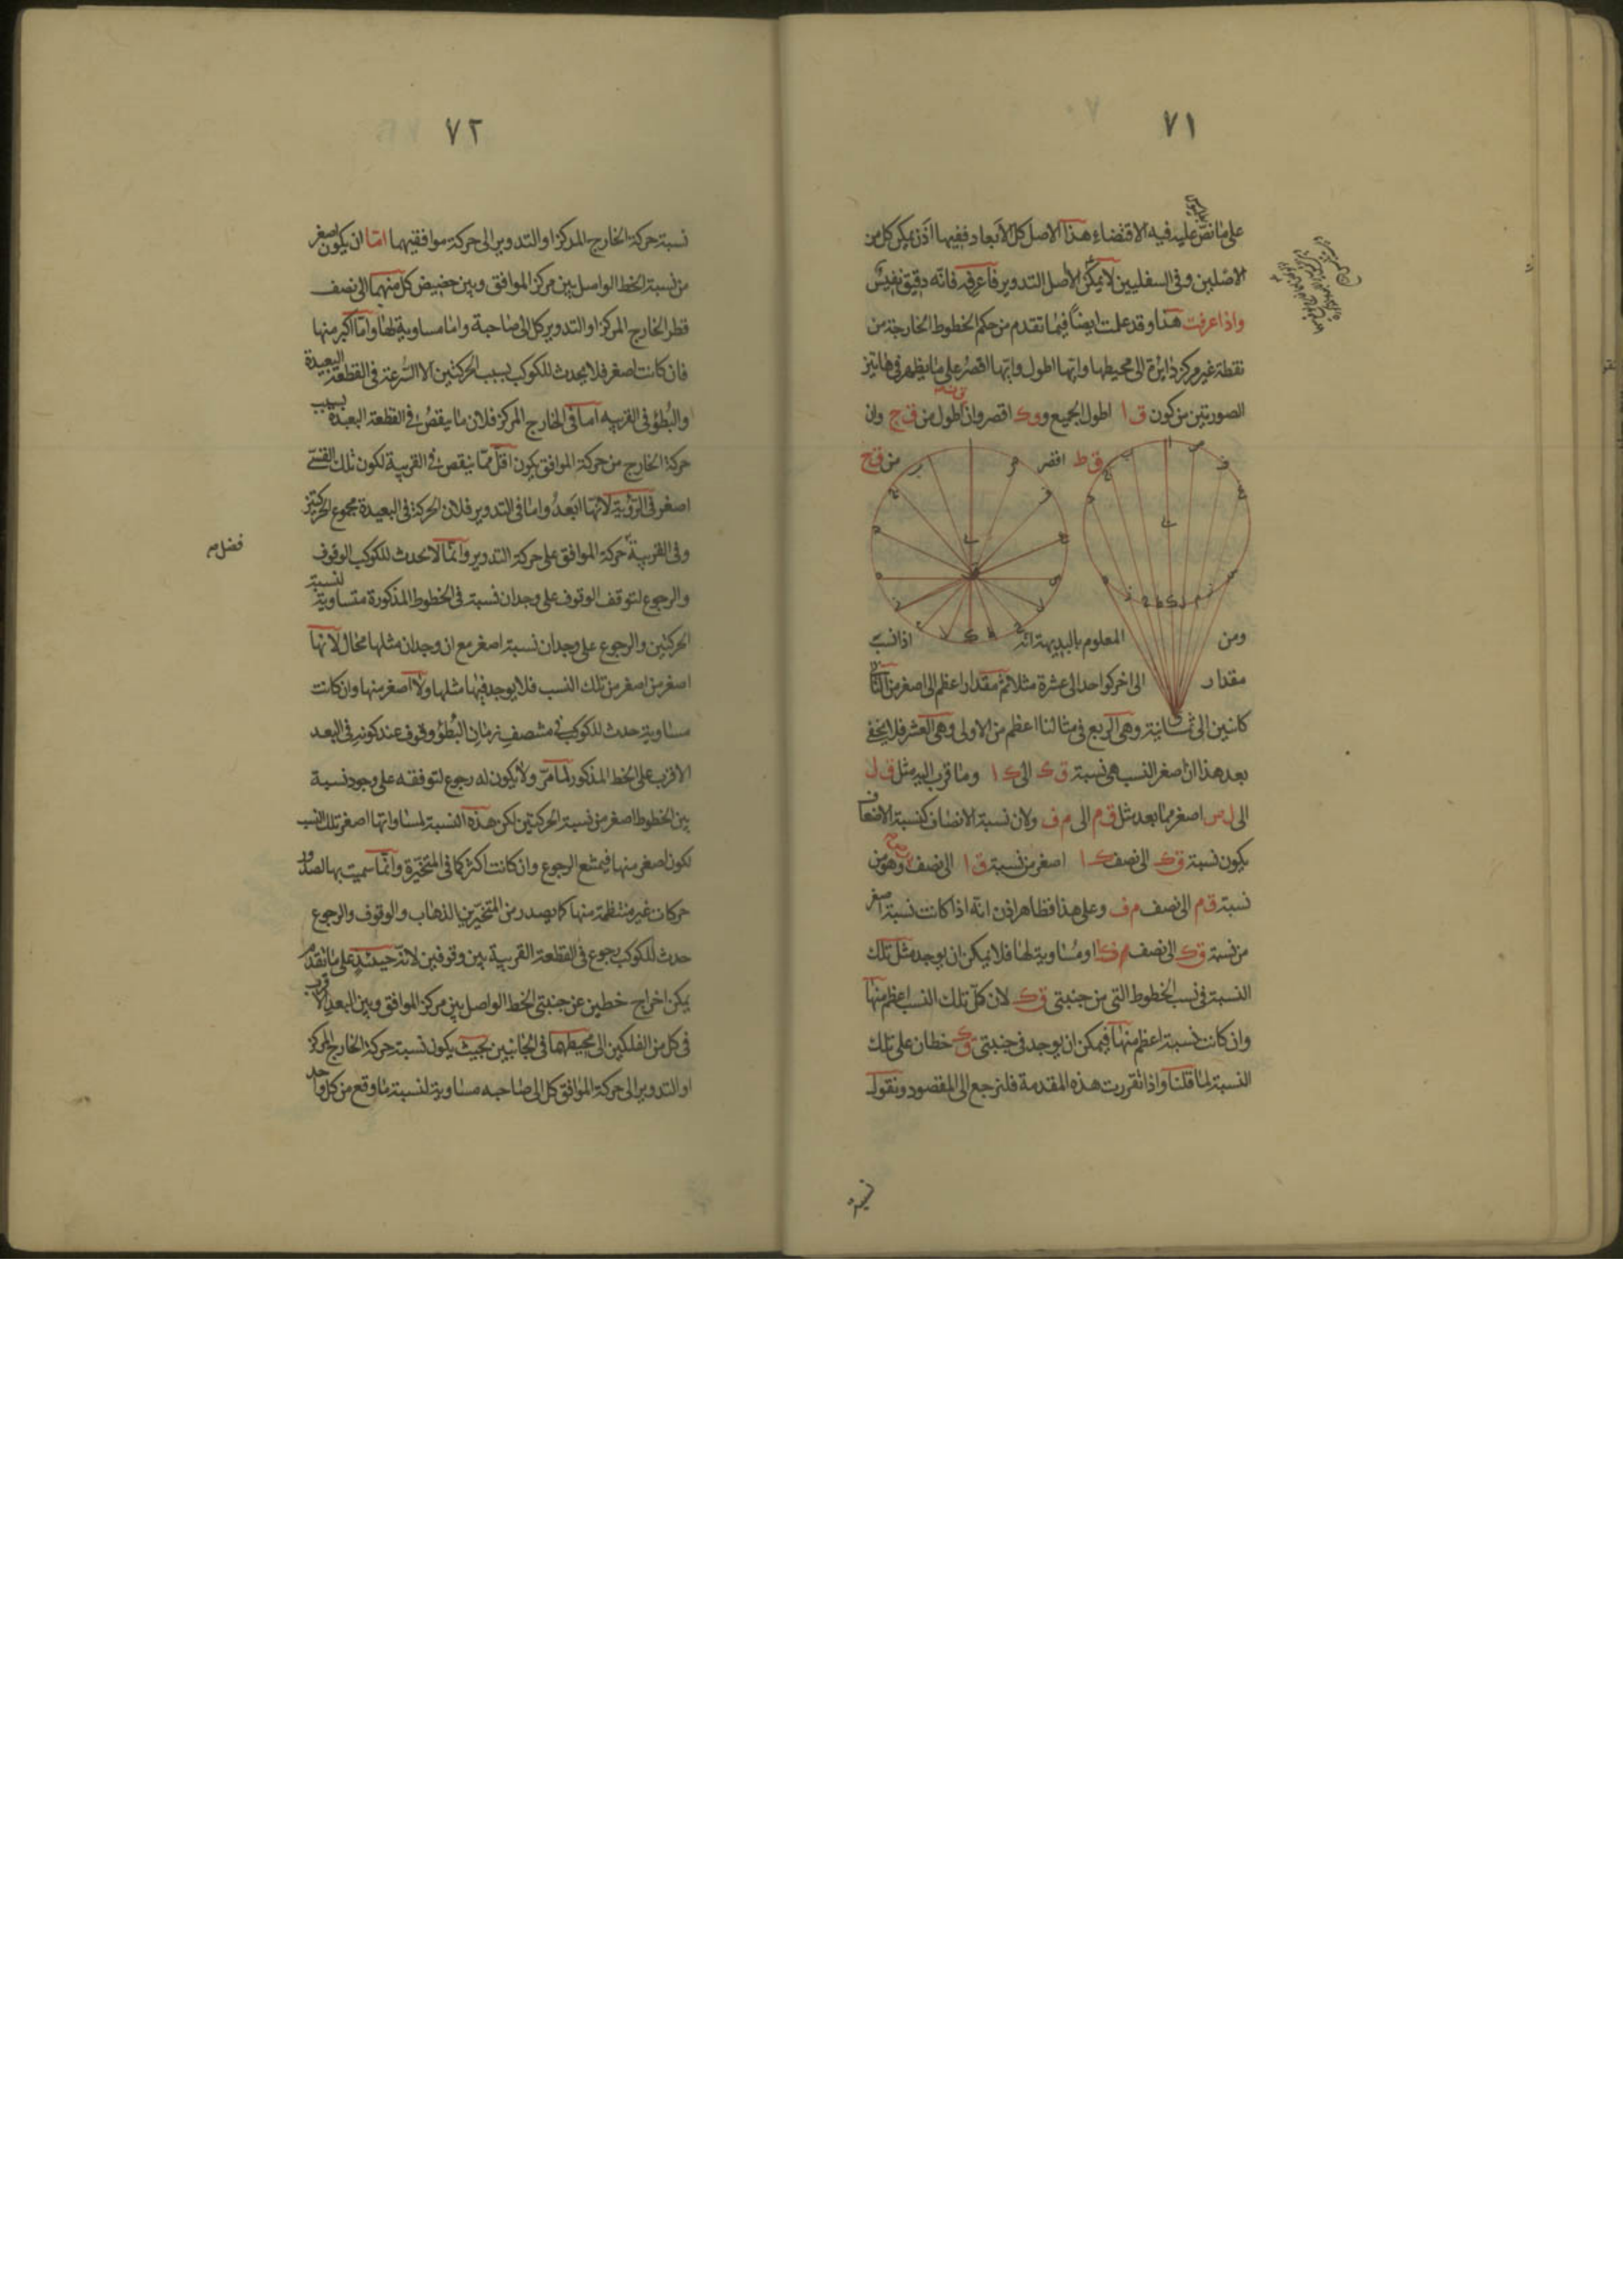 ٧١
على ما نص عليه فيه الاقتضاء هذا الاصل كل الابعاد ففيها اذن يمكن كل من
الاصلين وفى السفليين لا يمكن الا اصل التدوير فاعرفه فانه دقيق نفيس
واذا عرفت هذا وقد علمت ايضاً فيما تقدم من حكم الخطوط الخارجة من
نقطة غير مركز دائرة الى محيطها وايها اطول وايها اقصر على ما يظهر فى هاتين
الصورتين من كون ق ا اطول الجميع و ق ك اقصر وان اطول من ق ج وان
ق ط اقصر من ق ح
ومن المعلوم بالبديهة انه اذا نسب
مقدار الى اخر كواحد الى عشرة مثلا ثم مقدار اعظم الى اصغر من الثانى
كاثنين الى ثمانية وهى الربع فى مثالنا اعظم من الاولى وهى العشر فلا يخفى
بعد هذا ان اصغر النسب هى نسبة ق ك الى ك ا وما قرب اليه مثل ق ل
الى ل س اصغر مما بعد مثل ق م الى م ف ولان نسبة الانصاف كنسبة الاضعاف
يكون نسبة ق ك الى نصف ك ا اصغر من نسبة ق ا الى نصف وهو من
نسبة ق م الى نصف م ف وعلى هذا فظاهر اذن انه اذا كانت نسبة اصغر
من نسبة ق ك الى نصف ك ا او مساوية لها فلا يمكن ان يوجد مثل تلك
النسبة فى نسب الخطوط التى من جنبتى ق ك لان كل تلك النسب اعظم منها
وان كانت نسبة اعظم منها فيمكن ان يوجد فى جنبتى ق ك خطان على تلك
النسبة لما قلنا واذا تقررت هذه المقدمة فلنرجع الى المقصود ونقول
نسبة
٧٢
نسبة حركة الخارج المركز او التدوير الى حركة موافقيهما اما ان يكون اصغر
من نسبة الخط الواصل بين مركز الموافق وبين حضيض كل منهما الى نصف
قطر الخارج المركز او التدوير كل الى صاحبة واما مساوية لها واما اكبر منها
فان كانت اصغر فلا يحدث للكوكب بسبب الحركتين الا السرعة فى القطعة البعيدة
والبطؤ فى القريبه اما فى الخارج المركز فلان ما ينقص فى القطعة البعيدة بسبب
حركة الخارج من حركة الموافق يكون اقل مما ينقص فى القريبة لكون تلك القسى
اصغر فى الرؤية لانها ابعد واما فى التدوير فلان الحركة فى البعيدة مجموع الحركتين
وفى القريبة حركة الموافق على حركة التدوير وانما لا يحدث للكوكب الوقوف
فضل
والرجوع لتوقف الوقوف على وجدان نسبة فى الخطوط المذكورة متساوية لنسبة
الحركتين والرجوع على وجدان نسبة اصغر مع ان وجدان مثلها محال لانها
اصغر من اصغر من تلك النسب فلا يوجد فيها مثلها ولا اصغر منها وان كانت
مساوية حدث للكوكب فى منتصف زمان البطؤ وقوف عند كونه فى البعد
الاقرب على الخط المذكور لما مر ولا يكون له رجوع لتوقفه على وجود نسبة
بين الخطوط اصغر من نسبة الحركتين لكن هذه النسبة لمساواتها اصغر تلك النسب
تكون اصغر منها فيمتنع الرجوع وان كانت اكثر كما فى المتحيرة وانما سميت بها لصدور
حركات غير منتظمة منها كما يصدر من المتحيرين الذهاب والوقوف والرجوع
حدث للكوكب رجوع فى القطعة القريبة بين وقوفين لانه حينئذ على ما تقدم
يمكن اخراج خطين عن جنبتى الخط الواصل بين مركز الموافق وبين البعد الاقرب
فى كل من الفلكين الى محيطهما فى الجانبين بحيث يكون نسبة حركة الخارج المركز
او التدوير الى حركة الموافق كل الى صاحبه مساوية لنسبة ما وقع من كل واحد